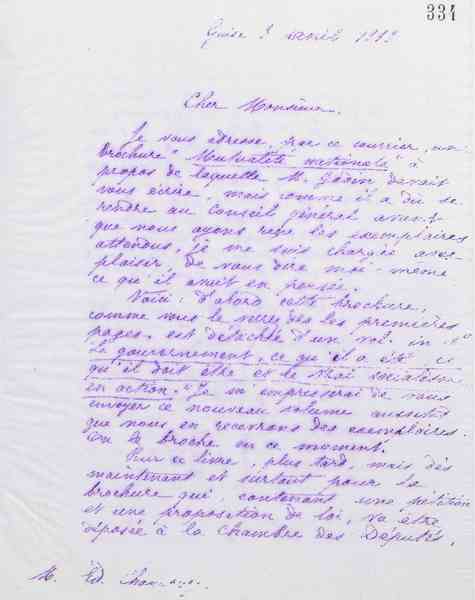 334
Guise 3 avril 1883
Cher Monsieur.
Je vous adresse, par ce courrier, une
brochure "Mutualité nationale" à
propos de laquelle M. Godin devait
vous écrire, mais comme il a dû se
rendre au Conseil général avant
que nous ayons reçu les exemplaires
attendus, je me suis chargée avec
plaisir de vous dire moi-même
ce qu'il avait en pensée.
Voici: d'abord cette brochure,
comme vous le verrez dès les premières
pages, est détachée d'un vol. in 8°
"Le gouvernement, ce qu'il a été, ce
qu'il doit être et le vrai socialisme
en action." Je m'empresserai de vous
envoyer ce nouveau volume aussitôt
que nous en recevrons des exemplaires.
On le broche en ce moment.
Pour ce livre, plus tard, mais dès
maintenant et surtout pour la
brochure qui, contenant une pétition
et une proposition de loi, va être
déposée à la Chambre des Députés,
M. Ed.